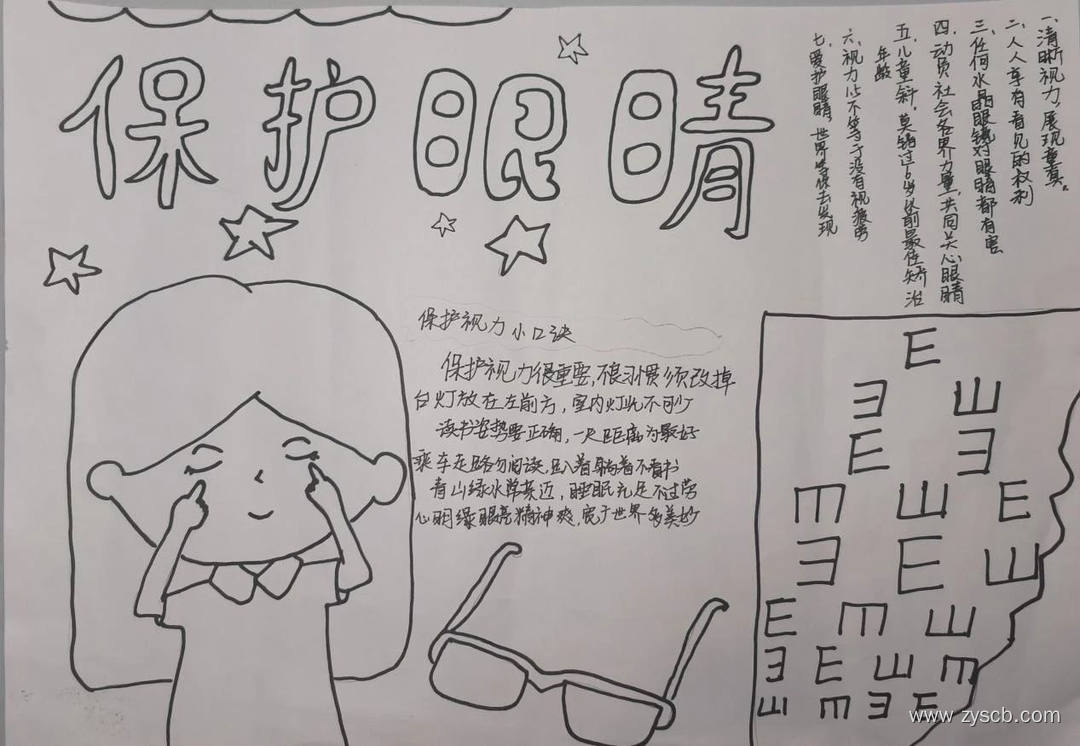 保护眼睛
一、清晰视力,展现童真。
二、人人享有看见的权利
三、任何水晶眼镜对眼睛都有害
四、动员社会各界力量,共同关心眼睛
五、儿童斜,莫错过6岁以前最佳矫治
年龄
六、视力1.0不等于没有视疲劳
七、爱护眼睛,世界等你去发现
保护视力小口诀
保护视力很重要,不良习惯须改掉
台灯放在左前方,室内灯光不可少
读书姿势要正确,一尺距离为最好
乘车走路勿阅读,趴着躺着不看书
青山绿水常,睡眠充足不过劳
心明眼亮精神爽,世界多美妙
E
Ǝ Ш
E Ǝ
M Ш E
Ǝ E Ш
E M Ш
Ǝ E Ш M
Ш M Ǝ E
www.zyscb.com